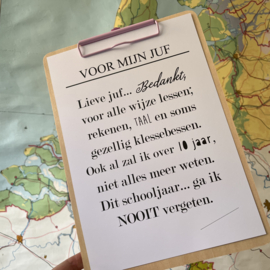 VOOR MIJN JUF
Lieve juf... Bedankt,
voor alle wijze lessen;
rekenen, TAAL en soms
gezellig klessebessen.
Ook al zal ik over 10 jaar,
niet alles meer weten.
Dit schooljaar... ga ik
NOOIT vergeten.